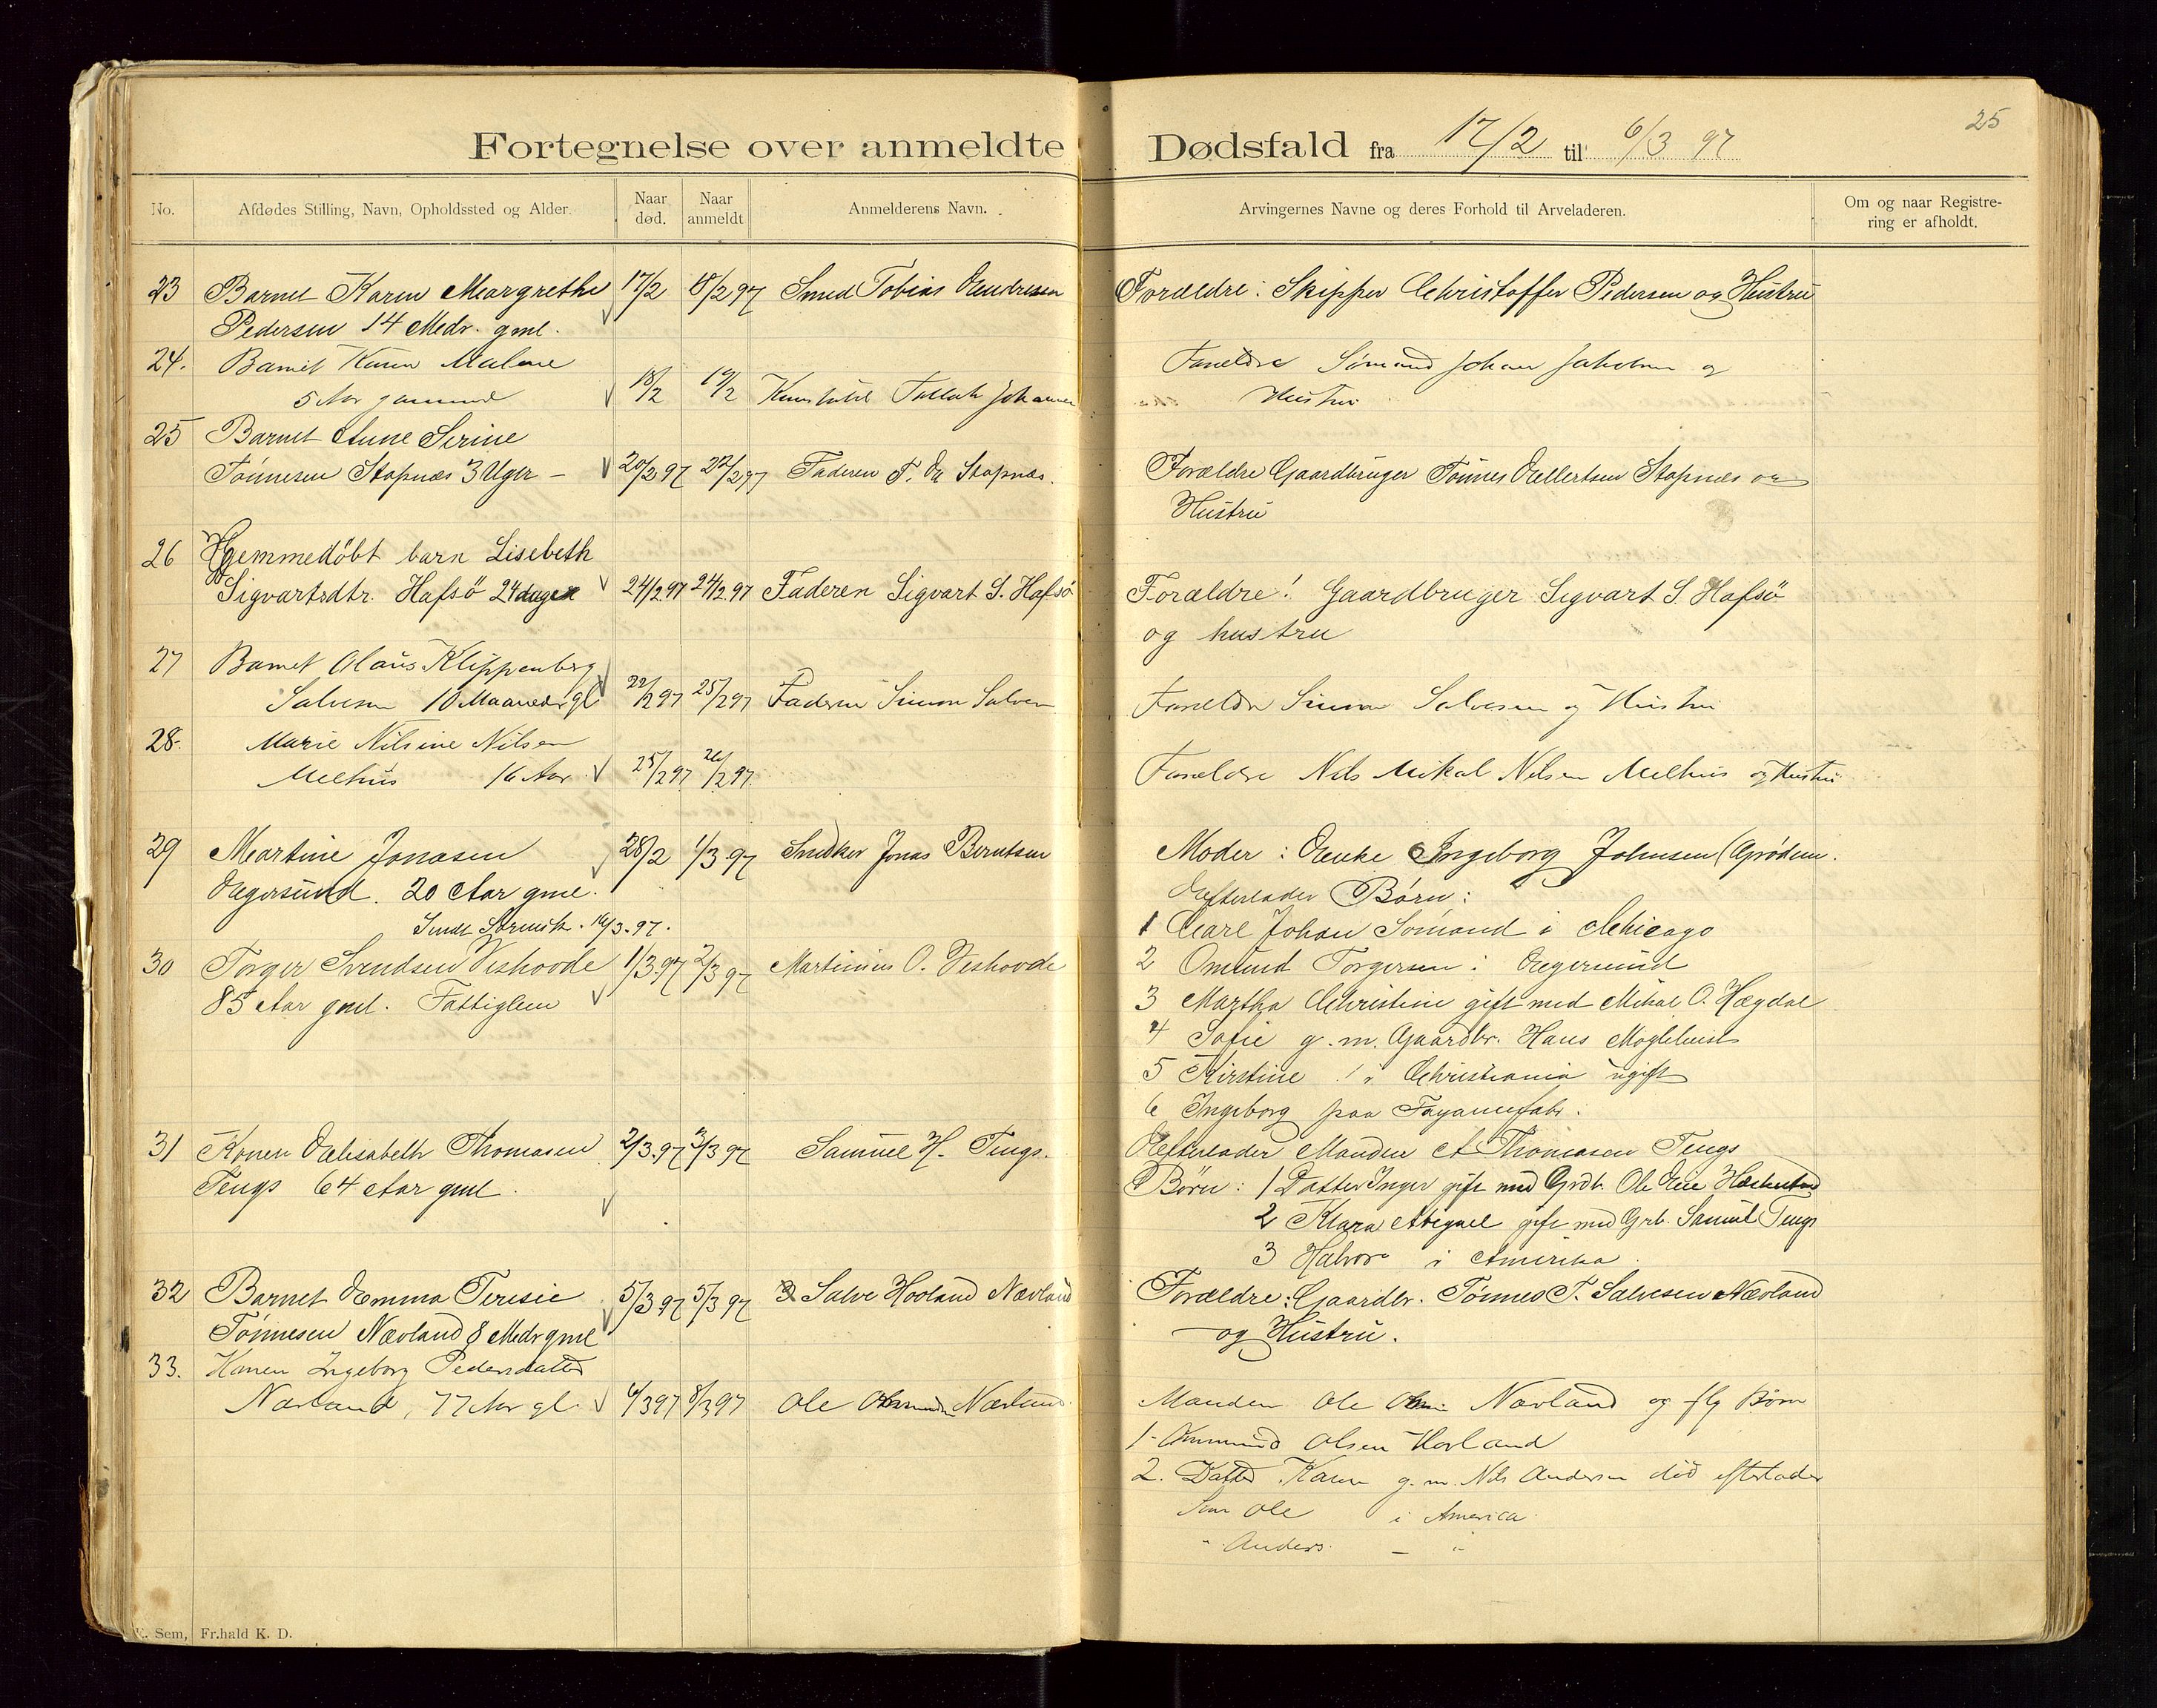 Fortegnelse over anmeldte Dødsfald fra 17/2 til 6/3 97
25
No. Afdødes Stilling, Navn, Opholdssted og Alder. Naar død. Naar anmeldt Anmelderens Navn. Arvingernes Navne og deres Forhold til Arveladeren. Om og naar Registrering er afholdt.
23 Barnet Karen Margrethe 17/2 18/2 97 Smed Tobias Forældre: Skipper Christoffer Pedersen og Hustru
Pedersen 14 Mdr. gml.
24. Barnet Karen Malene Forældre Sømand Johan Jakobsen og
5 Aar gammel 18/2 19/2 Tollak Johannesen Hustru
25 Barnet Anne Serine
Tønnesen Stapnæs 3 Uger — 20/2 97 22/2 97 Faderen T. E. Stapnæs. Forældre Gaardbruger Tønnes Ellertsen Stapnæs og
Hustru
26 Hjemmedøbt barn Lisebeth
Sigvartsdtr. Hafsö 24 dager 24/2.97 24/2.97 Faderen Sigvart S. Hafsö Forældre! Gaardbruger Sigvart S. Hafsö
og hustru
27 Barnet Olaus Klippenberg
Salvesen 10 Maaneder gl 22/2 97 25/2 97 Faderen Simon Salvesen Forældre Simon Salvesen og Hustru
28. Marie Nilsine Nilsen
Melhus 16 Aar 25/2 97 26/2 97. Forældre Nils Mikal Nilsen Melhus og Hustru
29 Martine Jonasen 28/2 1/3 97 Snedker Jonas Berntsen Moder: Enke Ingeborg Johnsen Grødem.
Egersund. 20 Aar gml.
Efterlader Børn:
16/3.97.
1 Carl Johan Sømand i Chicago
30 Torger Svendsen Veshovde 1/3.97 2/3 97 Martinius O. Veshovde
2 Omund Torgersen i Egersund
85 Aar gml. Fattiglem
3 Martha Christine gift med Mikal O. Hægdal
4 Sofie g.m. Gaardbr. Hans
5 Kirstine i Christiania ugift
6 Ingeborg paa Fayancefabr.
31 Konen Elisabeth Thomasen 2/3.97 3/3 97 Samuel H. Tengs. Efterlader Manden A Thomasen Tengs
Tengs 64 Aar gml. Børn: 1 Datter Inger gift med Grdb. Ole Eie
2 Klara Abigael gift med Grb. Samuel Tengs
3 Halvor i Amerika
32 Barnet Emma Teresie 5/3 97 5/3 97 Salve Hovland Nævland Forældre: Gaardbr. Tønnes T. Salvesen Nævland
Tønnesen Nævland 8 Mdr gml og Hustru.
33. Konen Ingeborg Pedersdatter
Nævland, 77 Aar gl. 6/3 97 8/3 97 Ole Nævland. Manden Ole Nævland og flg Børn
1. Ommund Olsen Hovland
2. Datter Karen g. m. Nils Andersen død efterlader
Søn Ole i America
" Anders — "
E. Sem, Fr.hald K. D.